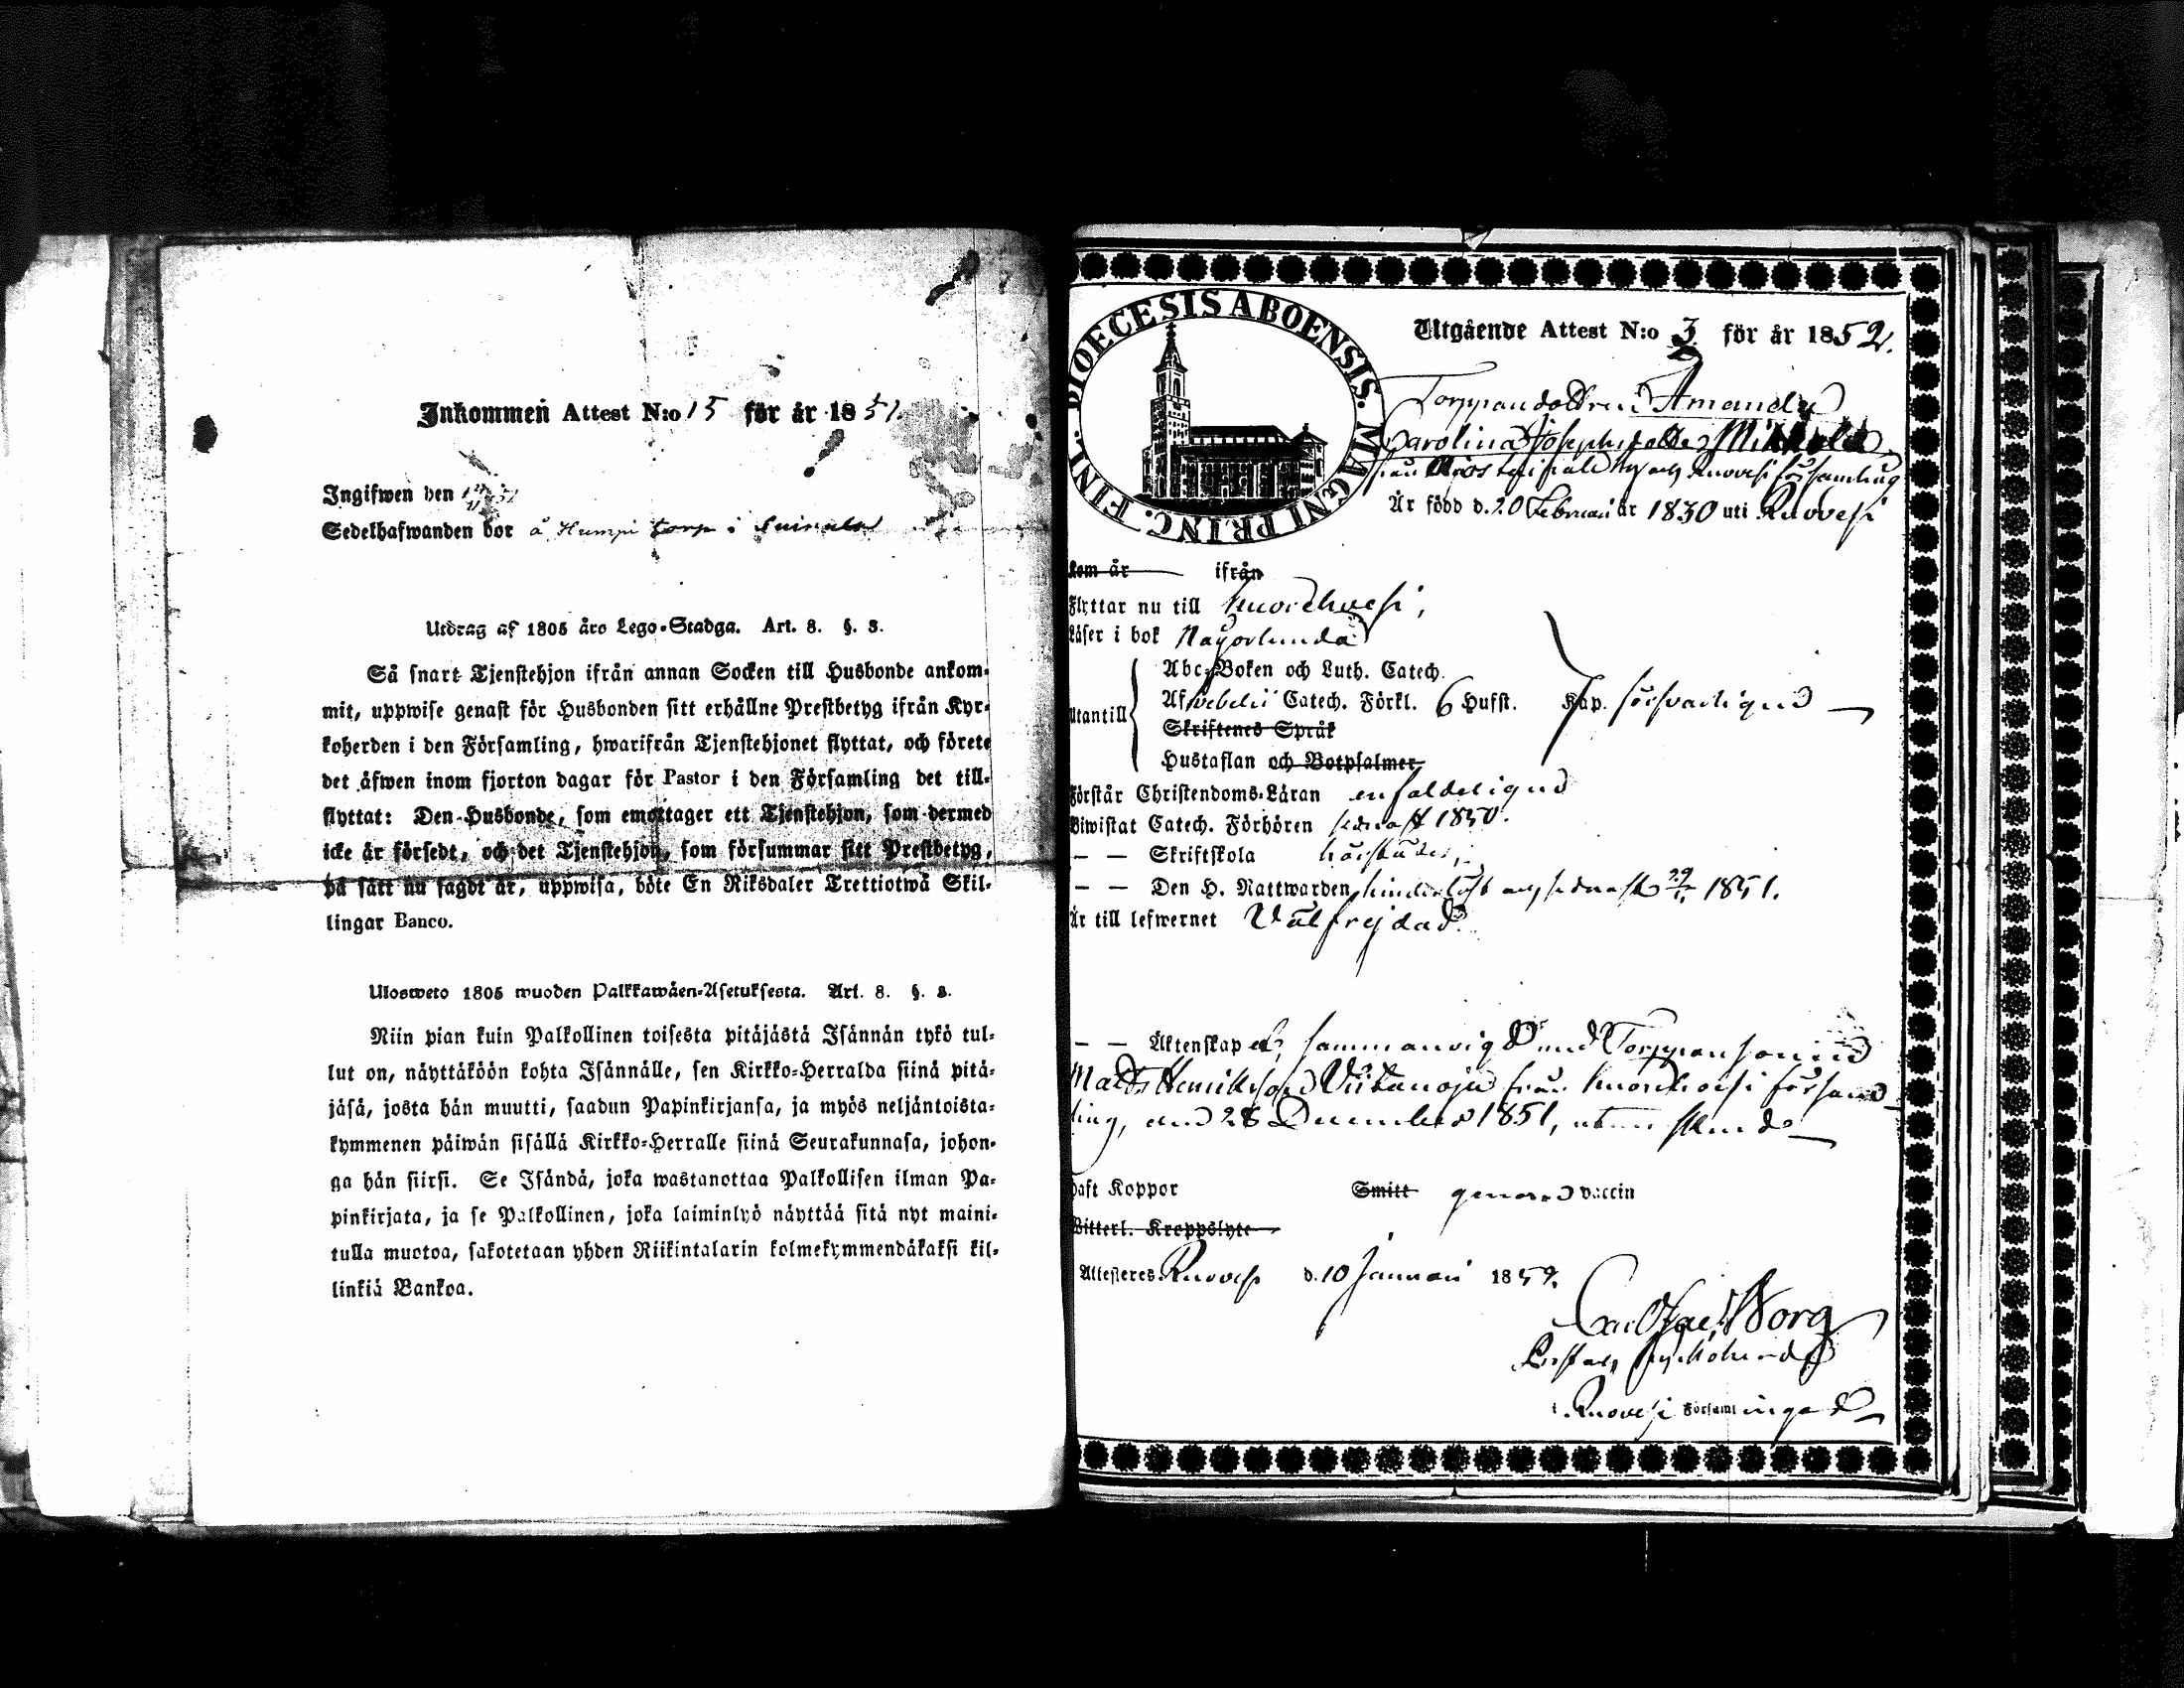 Inkommen Attest N:o 15 för år 1851.
Ingifwen den
Sedelhafwanden bor å Humpi torp i
Utdrag af 1805 års Lego-Stadga. Art. 8. §. 8.
Så snart Tjenstehjon ifrån annan Socken till Husbonde ankom-
mit, uppwise genast för Husbonden sitt erhållne Prestbetyg ifrån Kyr-
koherden i den Församling, hwarifrån Tjenstehjonet flyttat, och förete
det äfwen inom fjorton dagar för Pastor i den Församling det till-
flyttat: Den Husbonde, som emottager ett Tjenstehjon, som dermed
icke är försedt, och det Tjenstehjon, som försummar sitt Prestbetyg,
på sätt nu sagdt är, uppwisa, böte En Riksdaler Trettiotwå Skil-
lingar Banco.
Ulosweto 1805 wuoden Palkkawäen-Asetuksesta. Art. 8. §. 8.
Niin pian kuin Palkollinen toisesta pitäjästä Isännän tykö tul-
lut on, näyttäköön kohta Isännälle, sen Kirkko-Herralda siinä pitä-
jäsä, josta hän muutti, saadun Papinkirjansa, ja myös neljäntoista-
kymmenen päiwän sisällä Kirkko-Herralle siinä Seurakunnasa, johon-
ga hän siirsi. Se Isändä, joka wastanottaa Palkollisen ilman Pa-
pinkirjata, ja se Palkollinen, joka laiminlyö näyttää sitä nyt maini-
tulla muotoa, sakotetaan yhden Riikintalarin kolmekymmendäkaksi kil-
linkiä Bankoa.
DIOECESIS ABOENSIS. MAGNI PRINC. FINL.
Utgående Attest N:o 3 för år 1852.
Torppardottren Amanda
Carolina Josephsdotter
från by och Ruovesi församling
Är född d. 20 Februari år 1830 uti Ruovesi
kom år ifrån
Flyttar nu till Kuorehvesi,
Läser i bok Någorlunda
Utantill
Abc-Boken och Luth. Catech.
Af Svebelii Catech. Förkl. 6 Hufst. Kap. försvarligen
Skriftenes Språk
Hustaflan och Botpsalmer
Förstår Christendoms-Läran enfaldeligen
Biwistat Catech. Förhören sednast 1850.
— — Skriftskola
— — Den H. Nattwarden hinderlöst och sednast 1851.
Är till lefwernet Välfrejdad.
— — Äktenskap sammanvigd med Torpparsonen
Matts Henriksson Viitanoja från Kuorehvesi försam-
ling, den 28 December 1851, utom
Haft Koppor Smitt genom vaccin
Witterl. Kroppslyte
Attesteres Ruovesi d. 10 Januari 1852.
Carl Borg
Prost och Kyrkoherde
i Ruovesi Församlingar